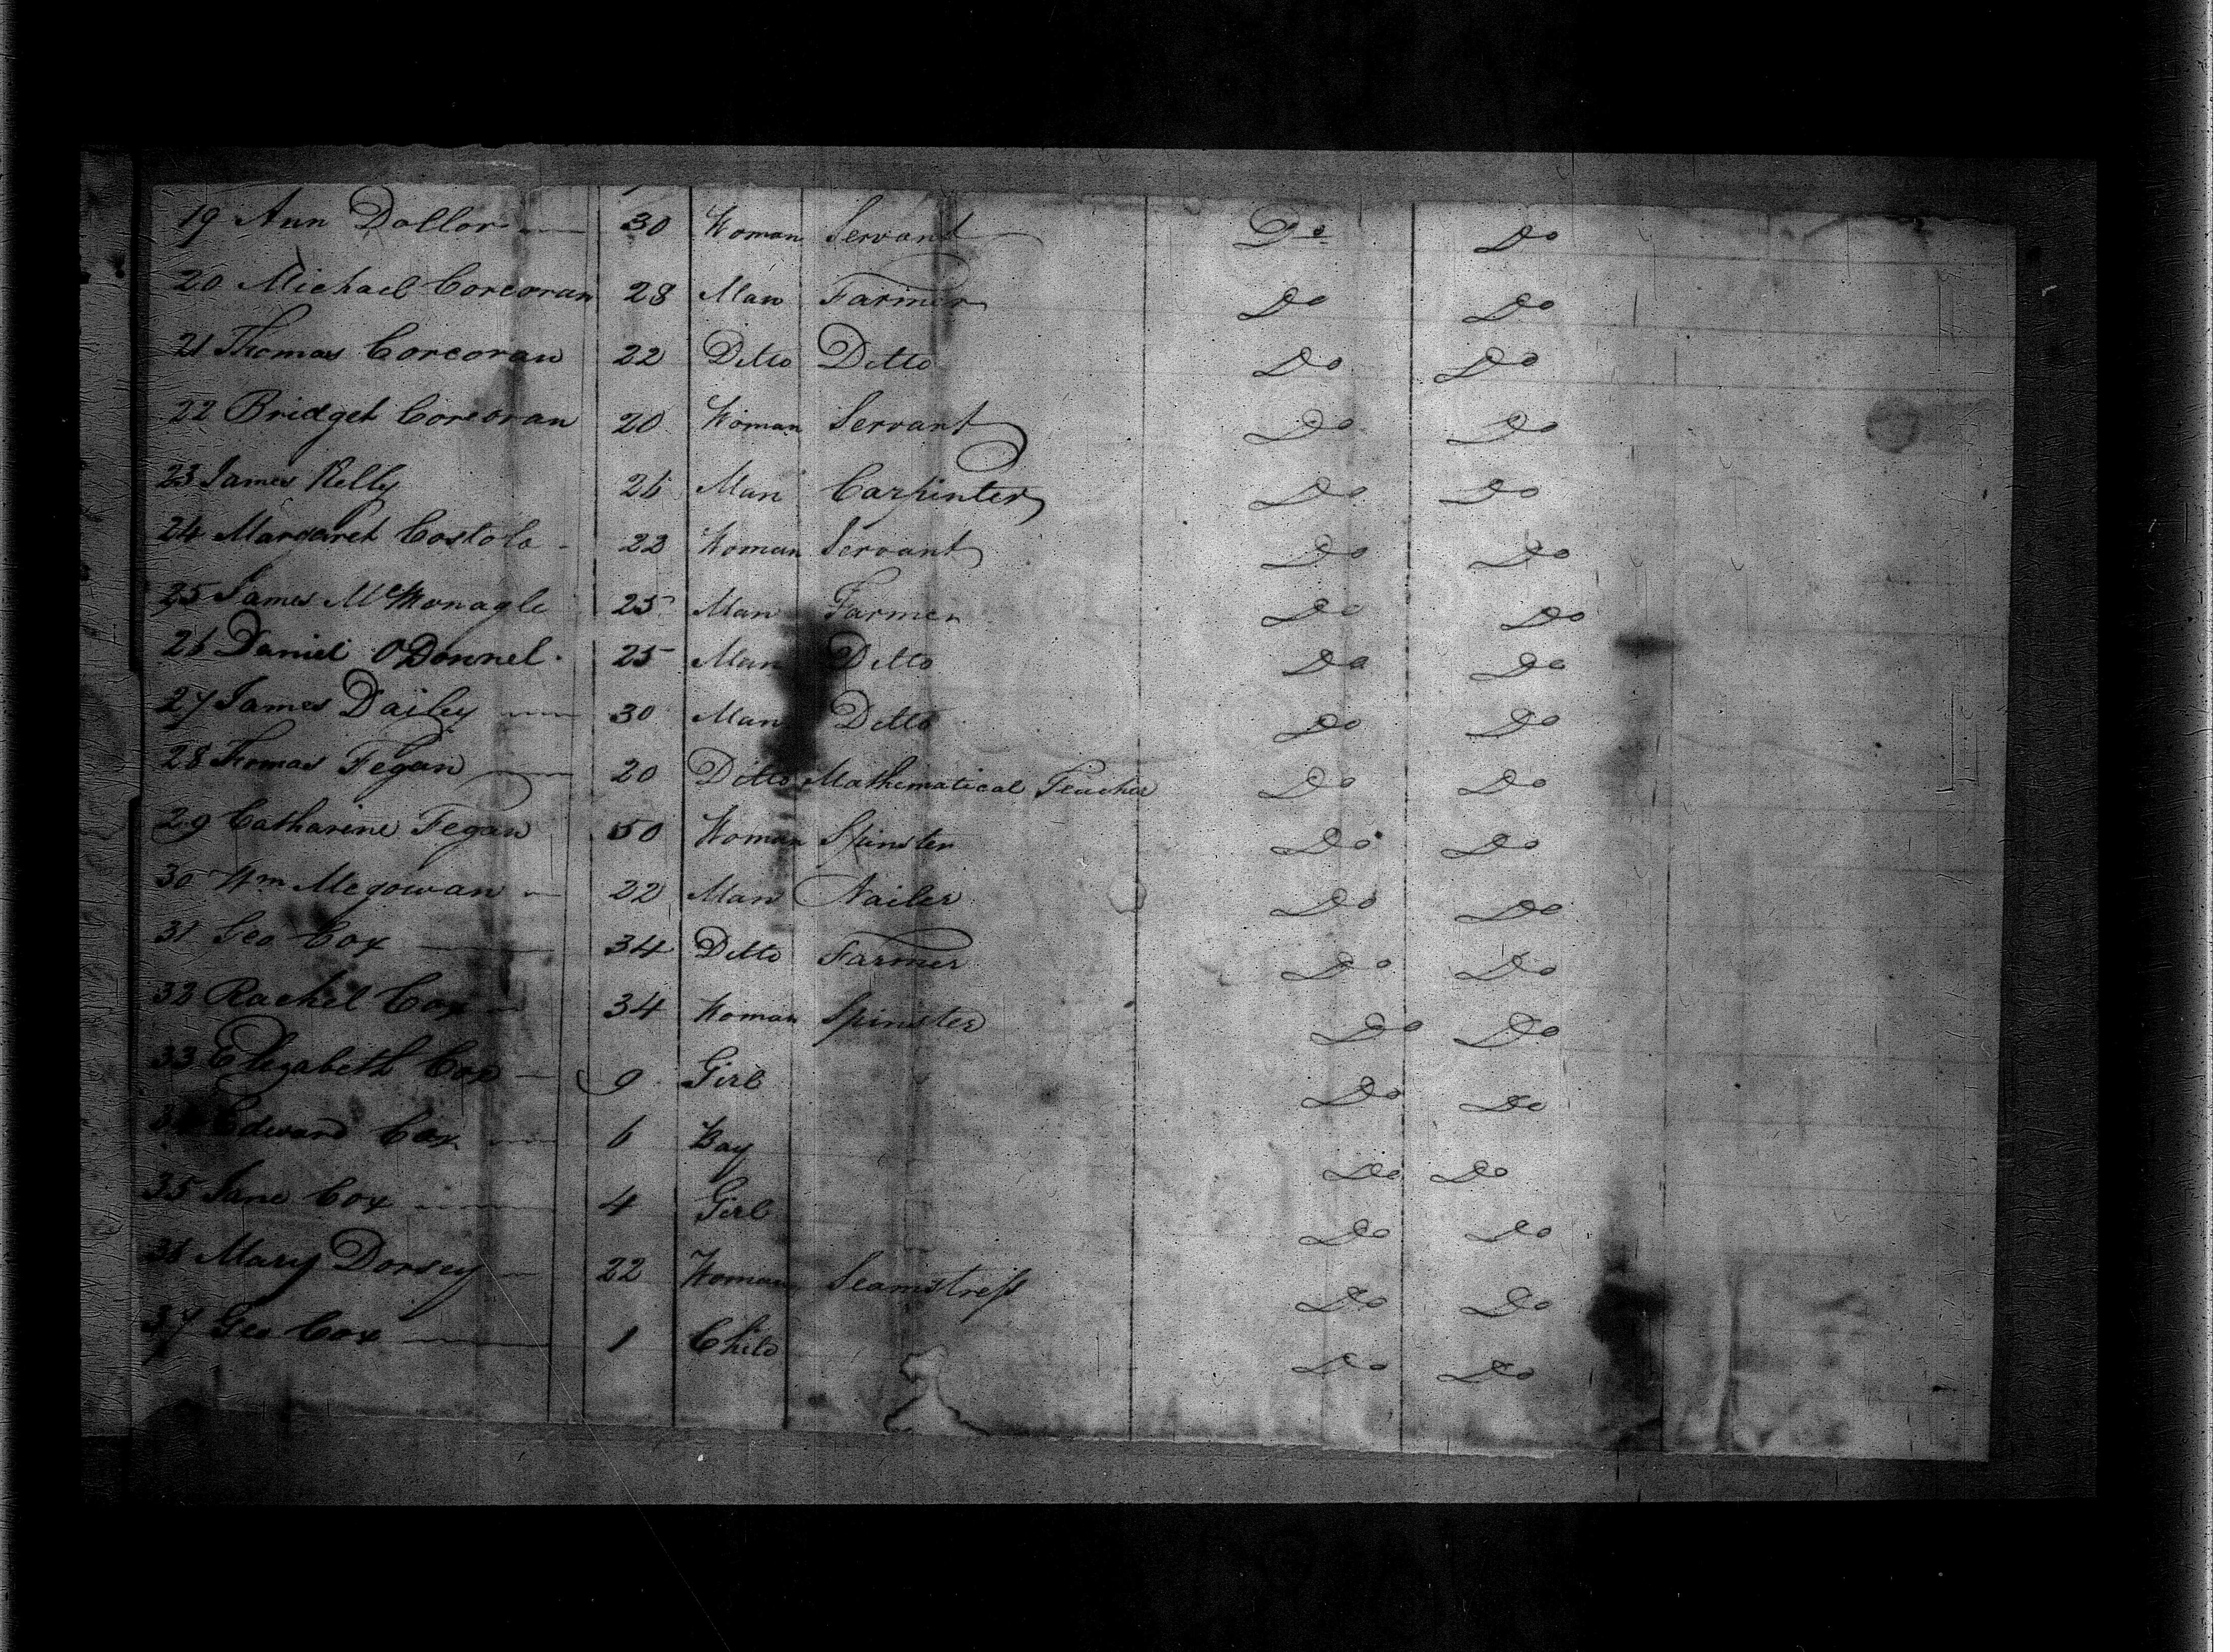 19 Ann Dollor 30 Woman Servant Do Do
20 Michael Corcoran 28 Man Farmer Do Do
21 Thomas Corcoran 22 Ditto Ditto Do Do
22 Bridget Corcoran 20 Woman Servant Do Do
23 James Kelly 26 Man Carpinter Do Do
24 Margaret Costolo 22 Woman Servant Do Do
25 James McMonagle 25 Man Farmer Do Do
26 Daniel ODonnel 25 Man Ditto Do Do
27 James Dailey 30 Man Ditto Do Do
28 Thomas Fegan 20 Ditto Mathematical Teacher Do Do
29 Catharine Fegan 50 Woman Spinster Do Do
30 Wm Megowan 22 Man Nailer Do Do
31 Geo Cox 34 Ditto Farmer Do Do
32 Rachel Cox 34 Woman Spinster Do Do
33 Elizabeth Cox 9 Girl Do Do
34 Edward Cox 6 Boy Do Do
35 Jane Cox 4 Girl Do Do
36 Mary Dorsey 22 Woman Seamstress Do Do
37 Geo Cox 1 Child Do Do